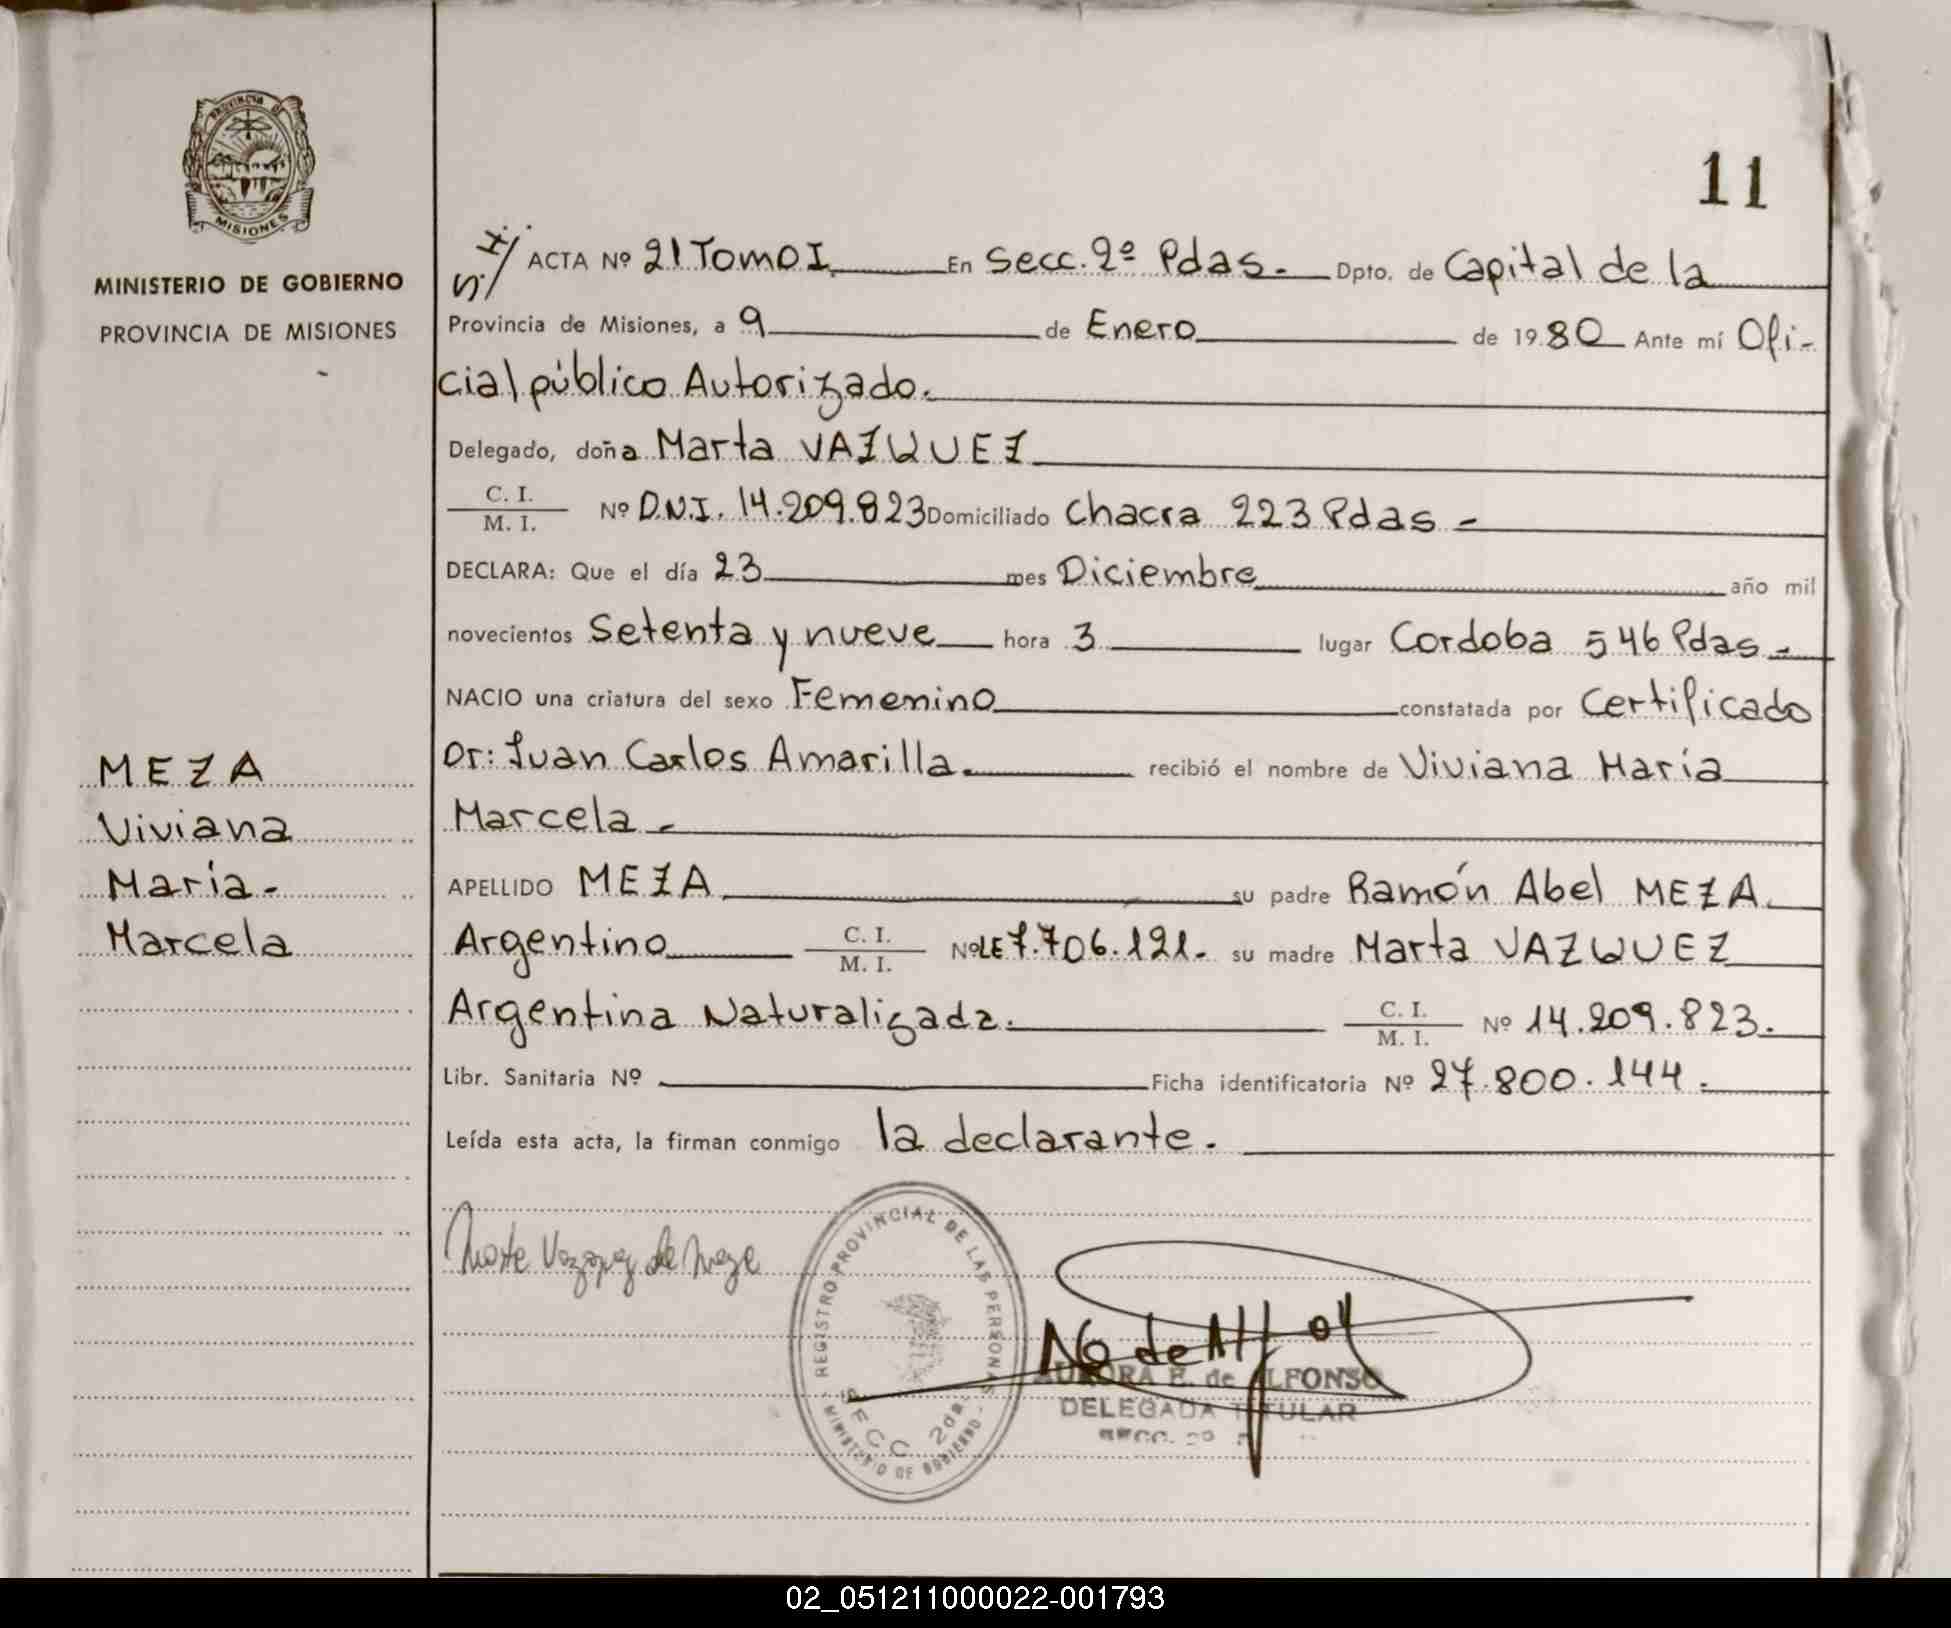 PROVINCIA DE
MISIONES
MINISTERIO DE GOBIERNO
PROVINCIA DE MISIONES
11
S/I. ACTA Nº 21 Tomo I. En Secc. 2º Pdas.- Dpto. de Capital de la
Provincia de Misiones, a 9 de Enero de 1980 Ante mí Ofi-
cial público Autorizado.
Delegado, doña Marta VAZQUEZ
C. I.
M. I. Nº D.N.I. 14.209.823 Domiciliado Chacra 223 Pdas-
DECLARA: Que el día 23 mes Diciembre año mil
novecientos Setenta y nueve hora 3 lugar Cordoba 546 Pdas-
NACIO una criatura del sexo Femenino constatada por Certificado
Dr: Juan Carlos Amarilla. recibió el nombre de Viviana María
Marcela-
APELLIDO MEZA su padre Ramón Abel MEZA.
Argentino C. I.
M. I. Nº LE 7.706.121. su madre Marta VAZQUEZ
Argentina Naturalizada. C. I.
M. I. Nº 14.209.823.
Libr. Sanitaria Nº Ficha identificatoria Nº 27.800.144.
Leída esta acta, la firman conmigo la declarante.
MEZA
Viviana
María-
Marcela
Marta Vazquez de Meza
REGISTRO PROVINCIAL DE LAS PERSONAS
SECC 2da.
MINISTERIO DE GOBIERNO
AURORA E. de ALFONSO
DELEGADA TITULAR
SECC. 2º
02_051211000022-001793